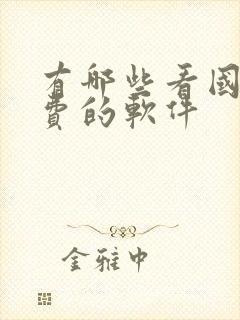 有哪些看国
费的软件
金雅中